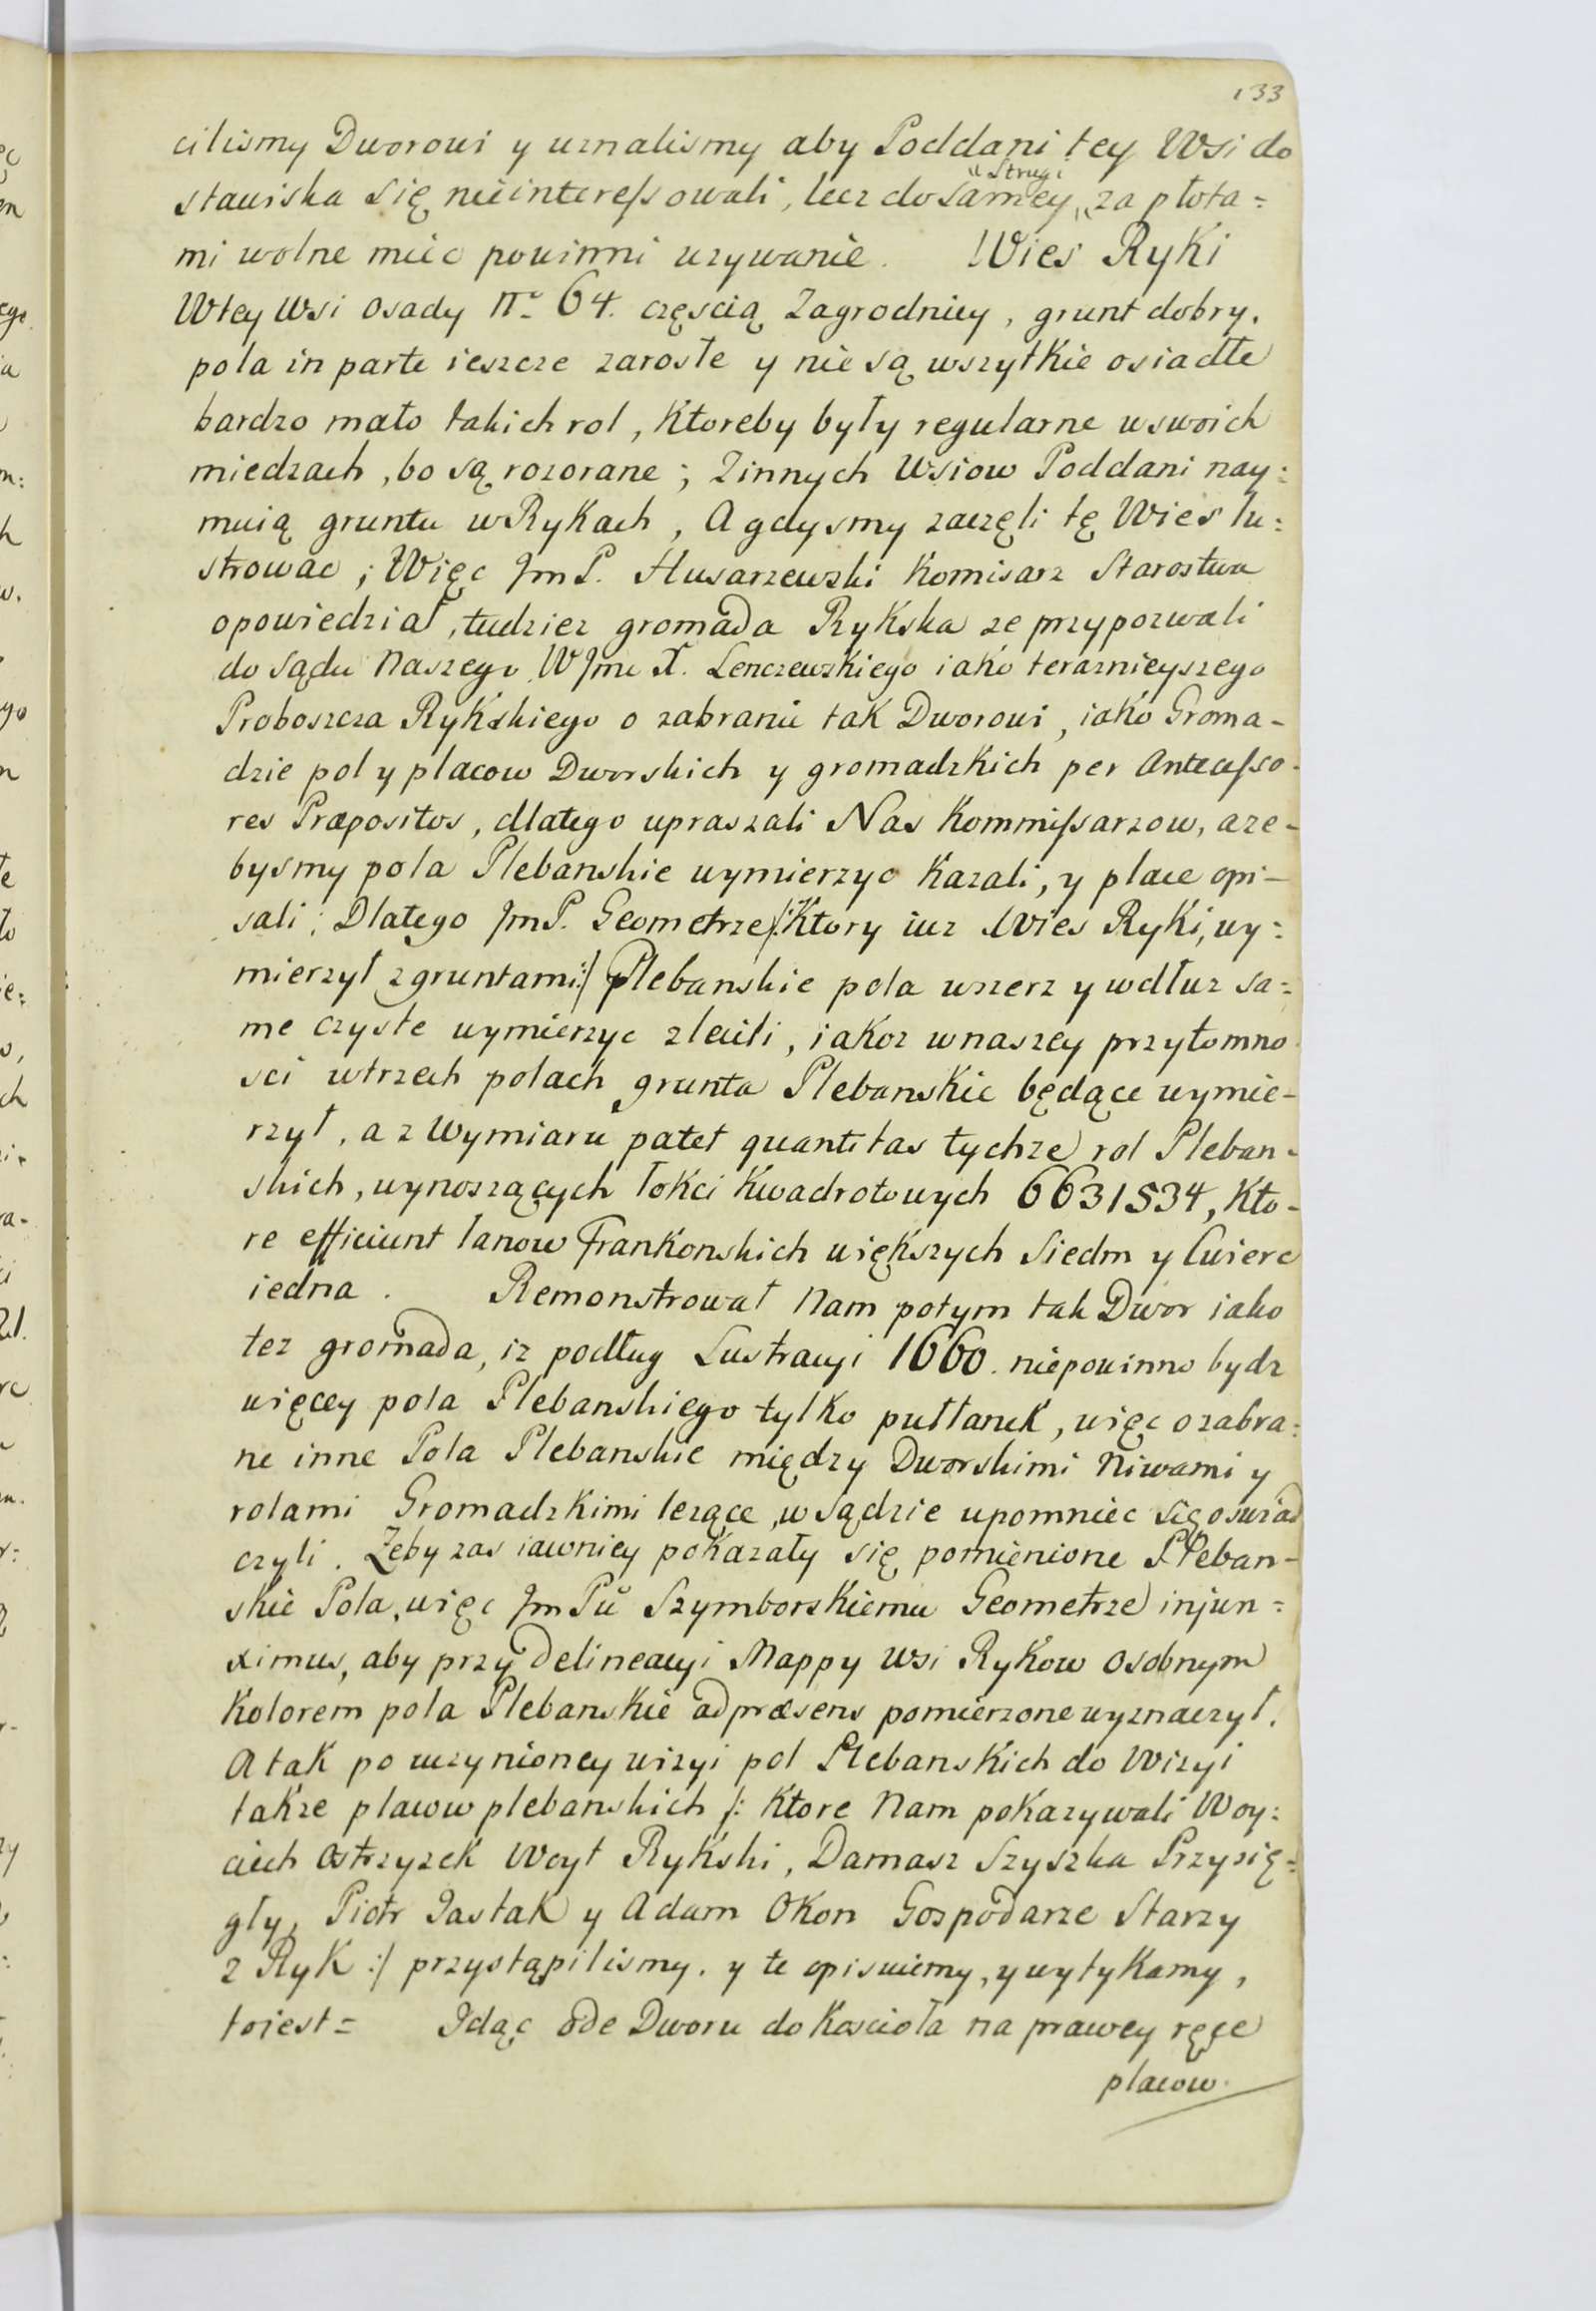 133
cilismy Dworowi y uznalismy aby Poddani tey Wsi do
stawiska się nieinteressowali, lecz do samey "Strugi" za płota=
mi wolne miec powinni uzywanie. Wies Ryki
W tey Wsi osady Nº 64. częscią Zagrodnicy, grunt dobry,
pola in parte ieszcze zarosłe y nie są wszytkie osiadłe
bardzo mało takich rol, Ktoreby były regularne w swoich
miedzach, bo są rozorane; Z innych Wsiow Poddani nay:
muią gruntu w Rykach, A gdysmy zaczęli tę Wies lu:
strowac; Więc Jm P. Husarzewski Komisarz Starostwa
opowiedział, tudziez gromada Rykska ze przypozwali
do sądu Naszego WJmc X. Lenczewskiego iako teraznieyszego
Proboszcza Rykskiego o zabranie tak Dworowi, iako Groma-
dzie pol y placow Dworskich y gromadzkich per Antecesso-
res Præpositos, dlatego upraszali Nas Kommissarzow, aze-
bysmy pola Plebanskie wymierzyc Kazali, y place opi-
sali; Dlatego Jm P. Geometrze /: Ktory iuz Wies Ryki, wy=
mierzył z gruntami :/ Plebanskie pola wszerz y wdłuz sa=
me czyste wymierzyc zlecili, iakoz w naszey przytomno
sci w trzech polach grunta Plebanskie będące wymie-
rzył, a z Wymiaru patet quantitas tychze rol Pleban-
skich, wynoszących łokci Kwadratowych 6631534, Kto-
re efficiunt łanow Frankonskich większych Siedm y Cwierc
iedna. Remonstrował Nam potym tak Dwor iako
tez gromada, iz podług Lustracyi 1660. niepowinno bydz
więcey pola Plebanskiego tylko pułłanek, więc o zabra:
ne inne Pola Plebanskie między Dworskimi Niwami y
rolami Gromadzkimi lezące, w sądzie upomniec się oswiad
czyli. Zeby zas iawniey pokazały się pomienione Pleban-
skie Pola, więc Jm Pů Szymborskiemu Geometrze injun=
ximus, aby przy Delineacyi Mappy Wsi Rykow osobnym
Kolorem pola Plebanskie ad præsens pomierzone wyznaczył.
A tak po uczynioney wizyi pol Plebanskich do Wizyi
takze placow plebanskich /: Ktore Nam pokazywali Woy:
ciech Ostrzyzek Woyt Rykski, Damasz Szyszka Przysię=
gły, Piotr Jastak y Adam Okon Gospodarze Starzy
z Ryk :/ przystąpilismy. y te opisuiemy, y wytykamy,
to iest= Idąc ode Dworu do Koscioła na prawey ręce
placow.